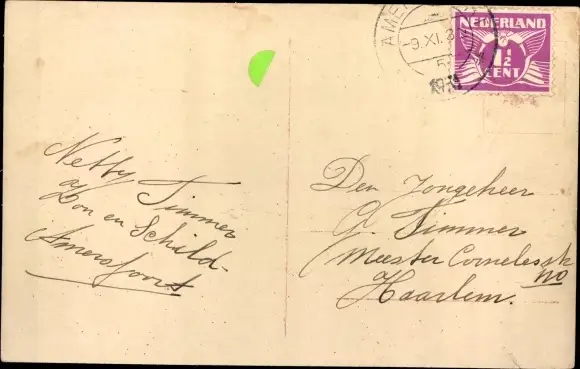 AME
-9.XI.3
5
1931
NEDERLAND
1½
CENT
Netty Timmer
Zon en Schild-
Amersfoort
Den Jongeheer
A. Timmer
Meester Cornelesstr
110
Haarlem.